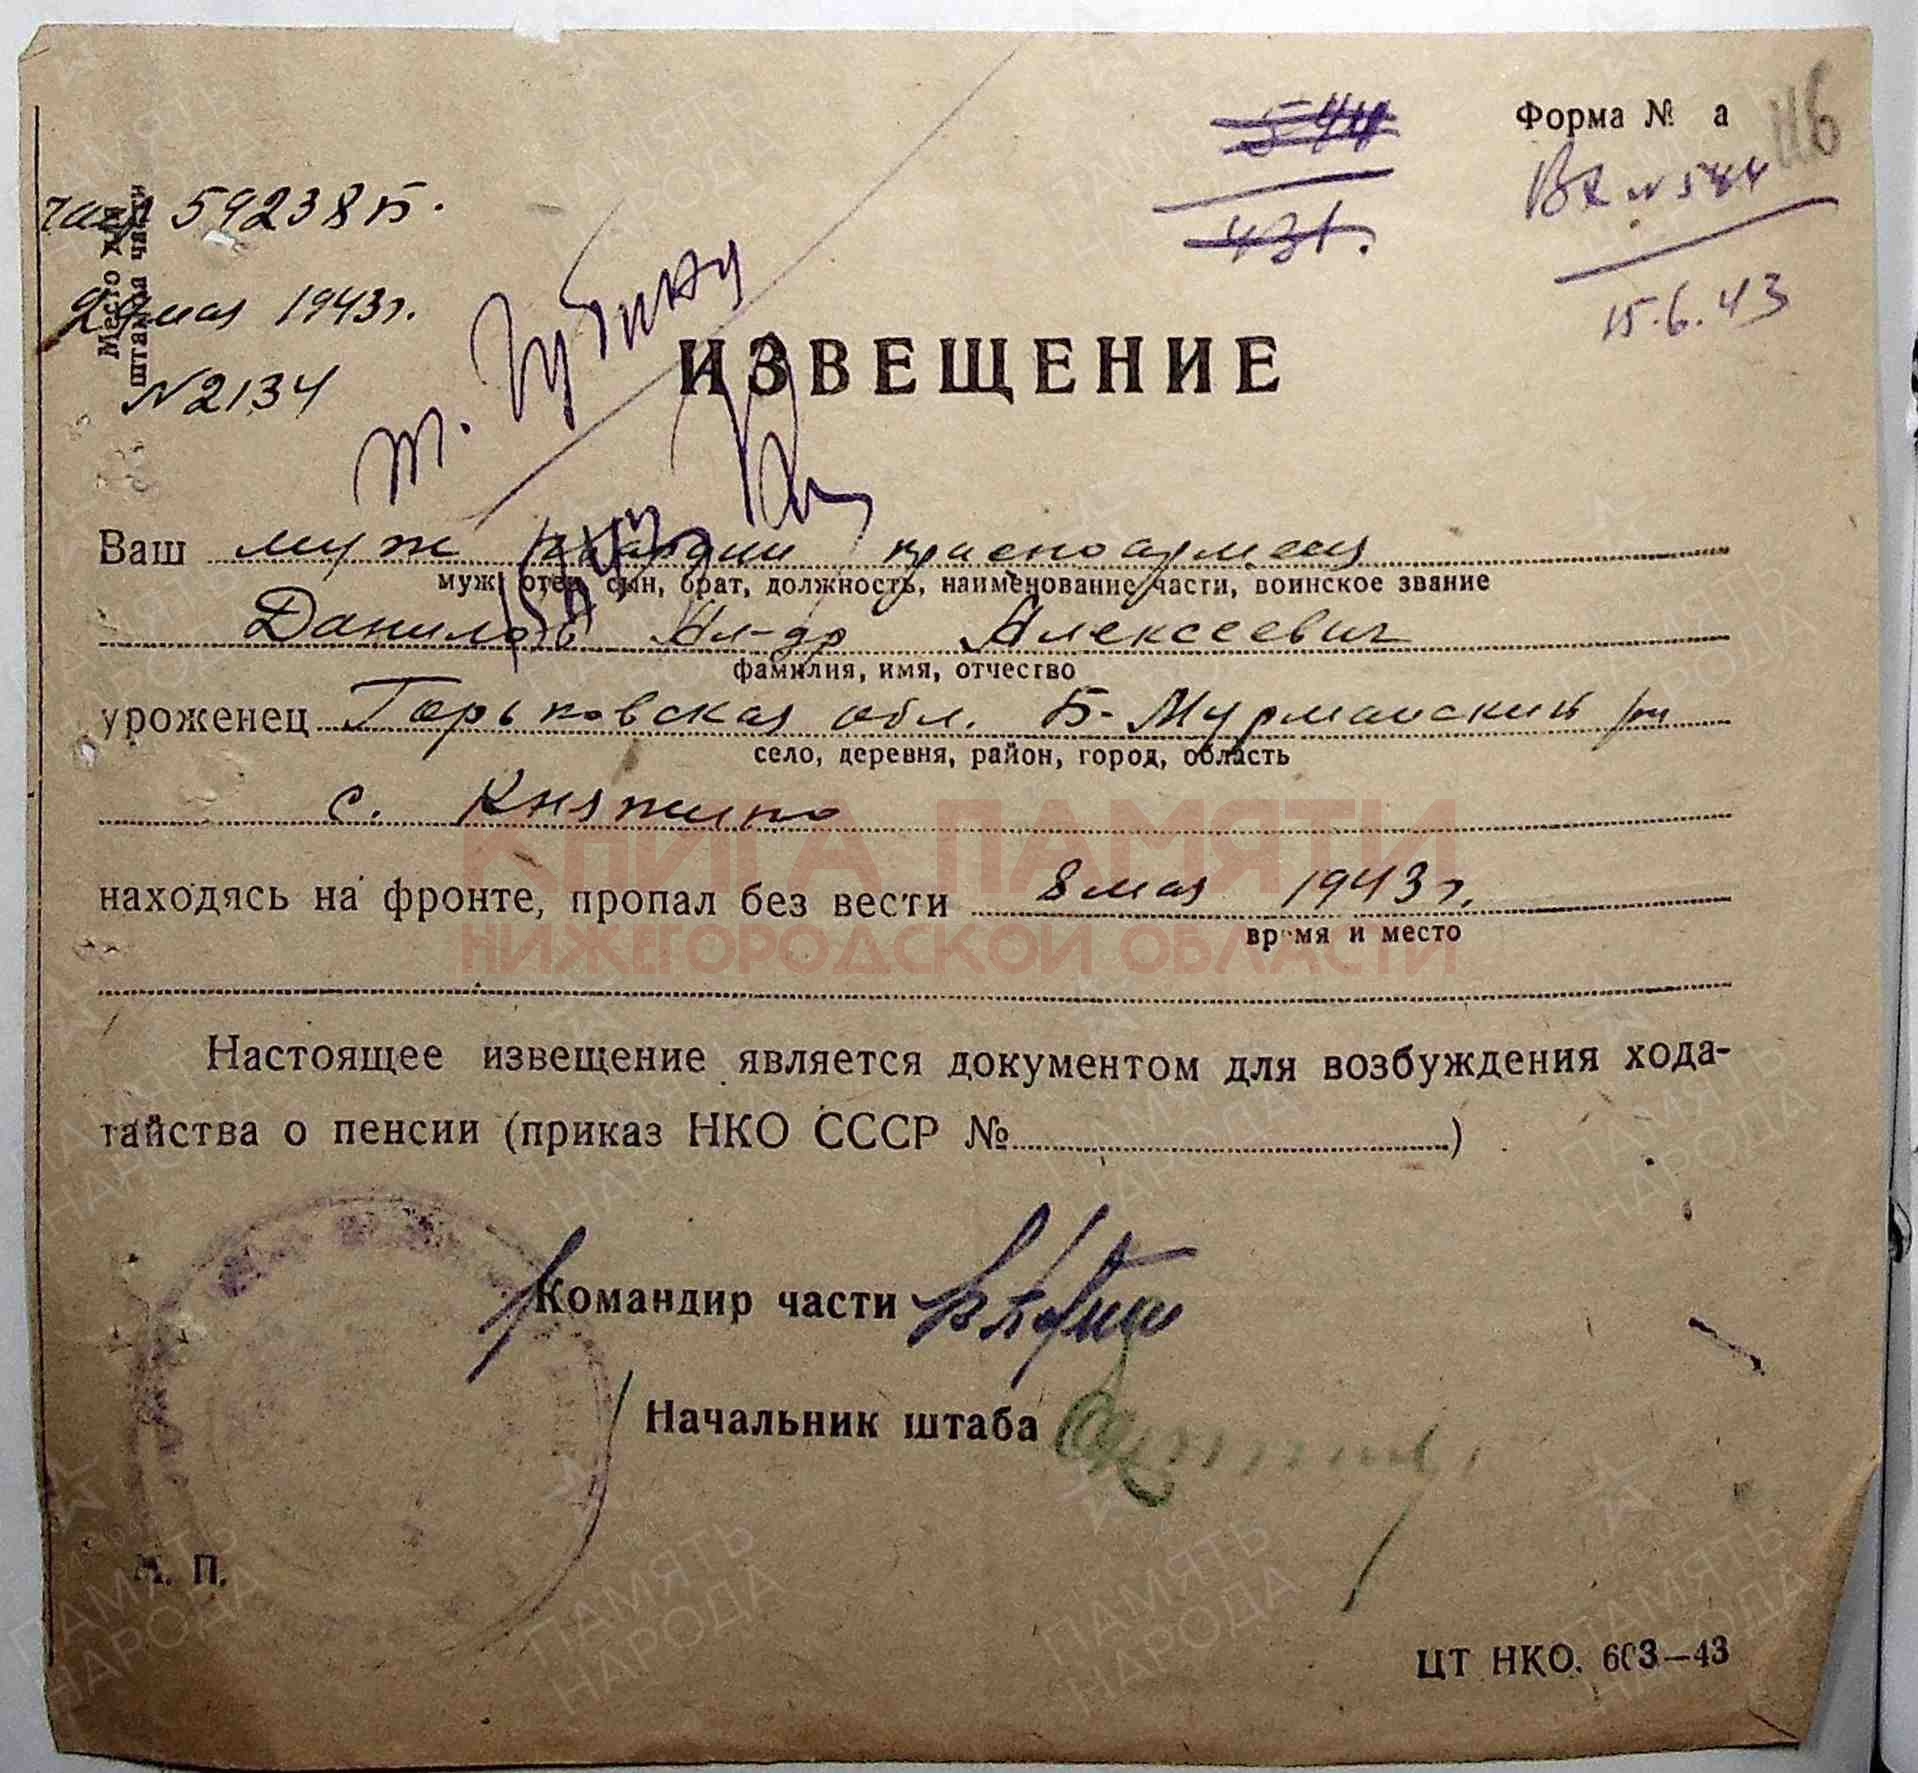 Форма № а
116
544
431.
Вх № 544
15.6.43
Место для
штампа части
част 59238 Б.
29 мая 1943г.
N 2134
т. Губину
ИЗВЕЩЕНИЕ
Ваш муж гвардии красноармеец
муж, отец, сын, брат, должность, наименование части, воинское звание
Данилов Ал-др Алексеевич
фамилия, имя, отчество
уроженец Горьковская обл. Б-Мурманский р-н
село, деревня, район, город, область
с. Княжино
КНИГА ПАМЯТИ
находясь на фронте, пропал без вести 8 мая 1943 г.
время и место
НИЖЕГОРОДСКОЙ ОБЛАСТИ
Настоящее извещение является документом для возбуждения хода-
тайства о пенсии (приказ НКО СССР № )
Командир части
Начальник штаба
М. П.
ЦТ НКО. 603—43
ПАМЯТЬ НАРОДА